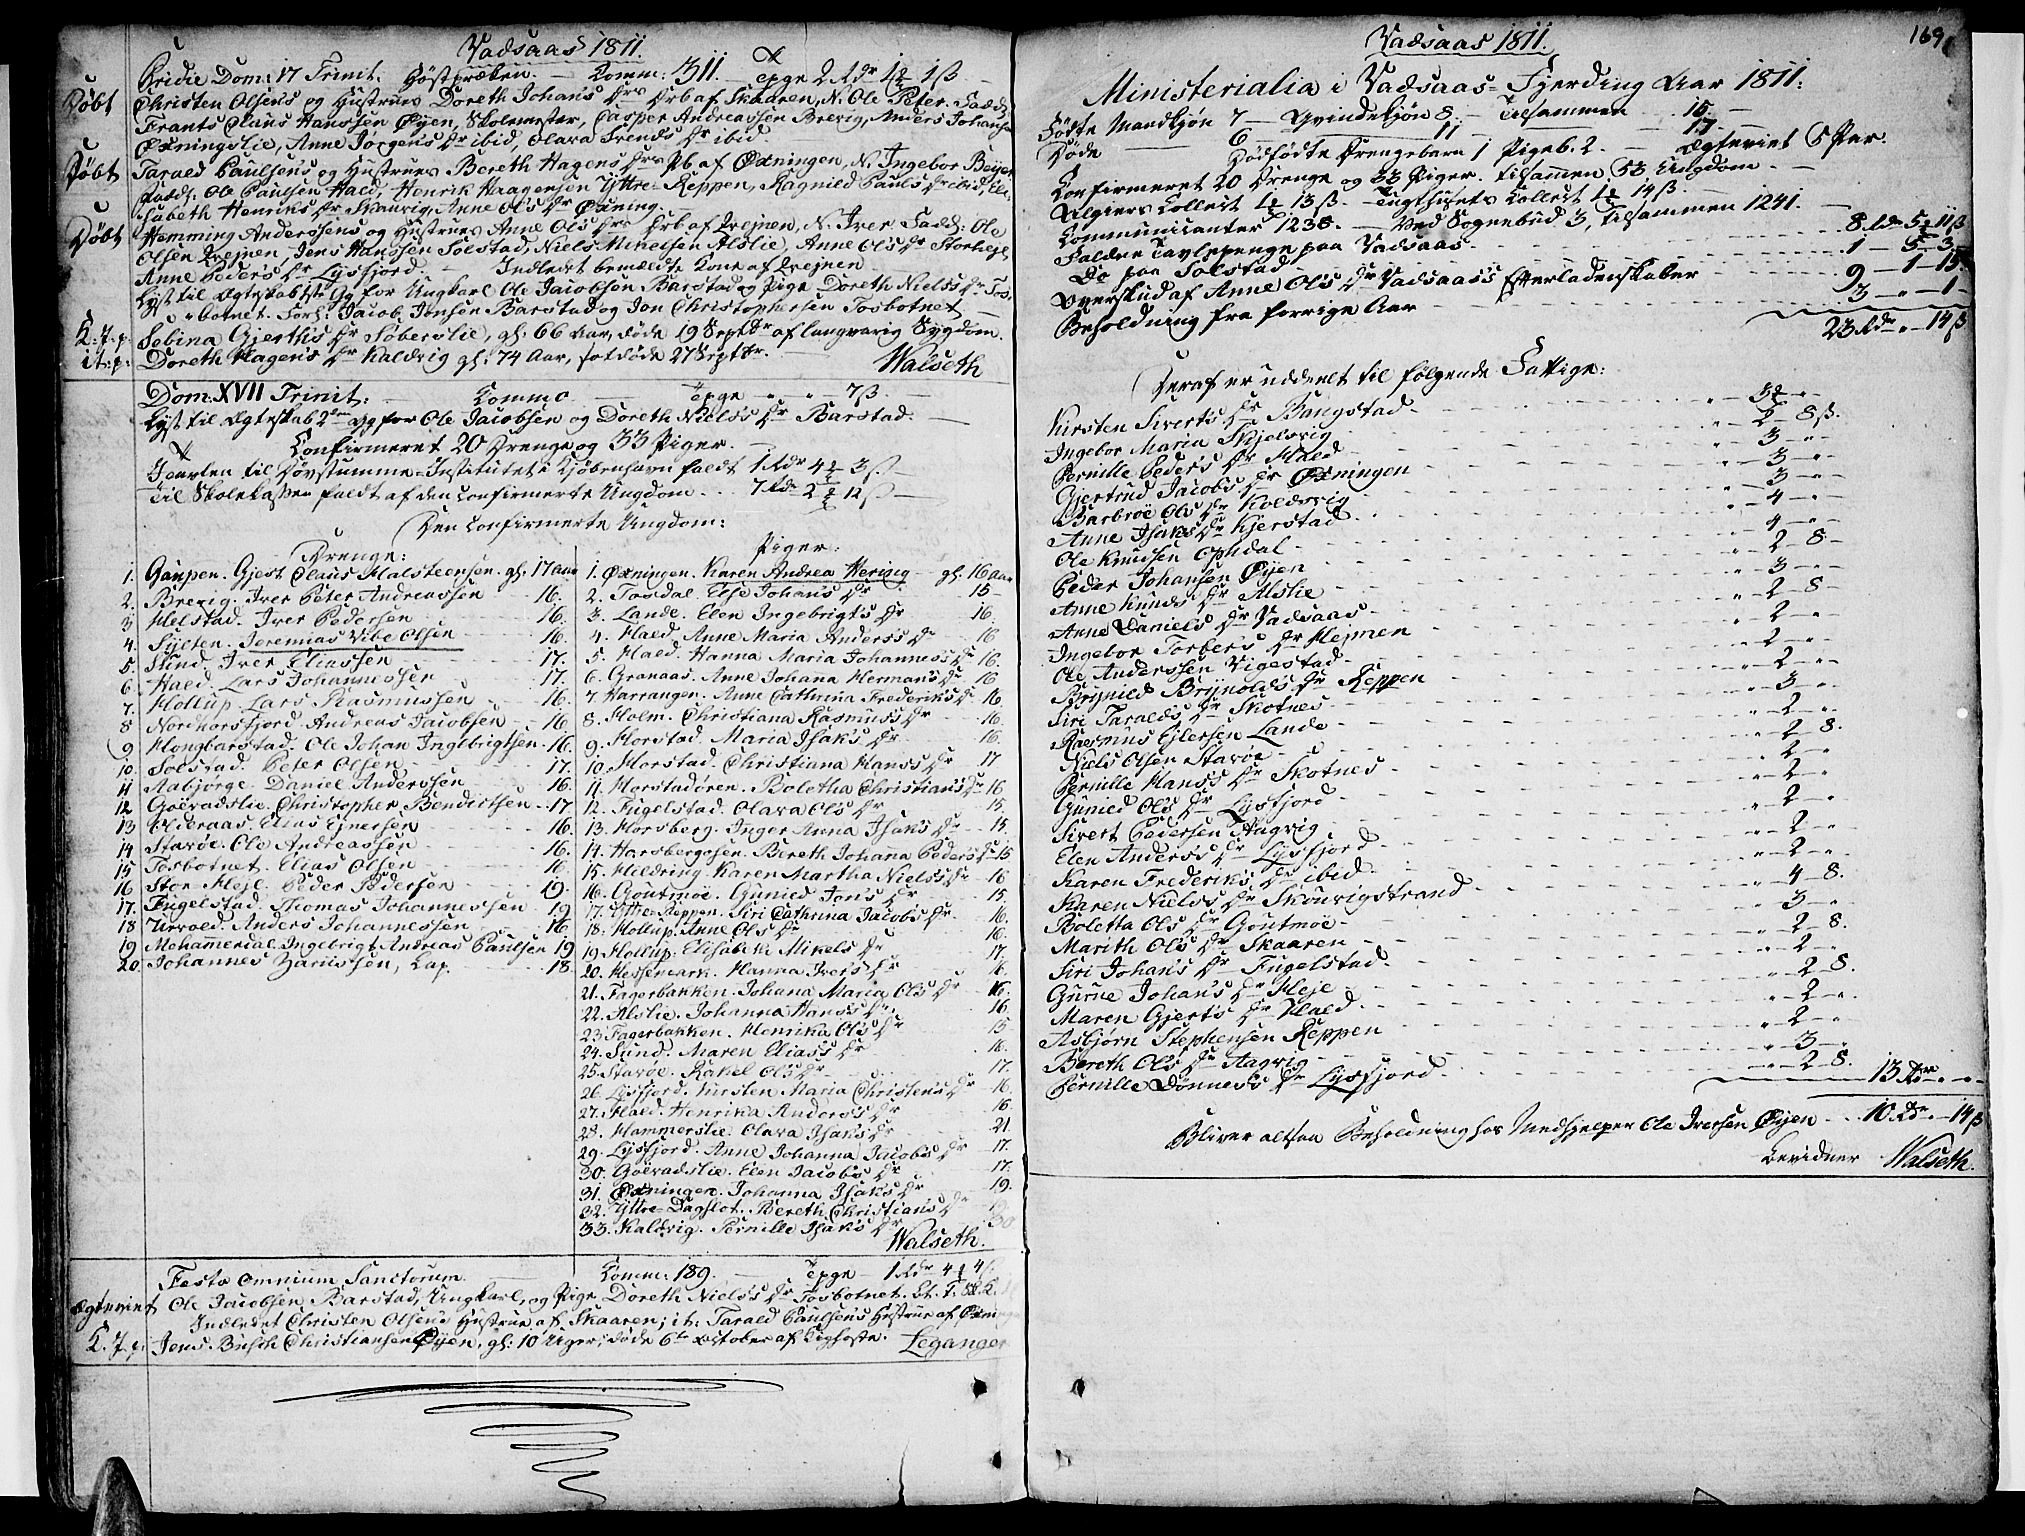 Vadsaas 1811.
Pridie Dom: 17 Trinit. Høstpræken. — Komm: 311. — Tpge 2 Rdr 1 ß
Døbt Christen Olsens og Hustrues Doreth Johans Drs Drb af Skaaren, N. Ole Peter. Fadd:
Frants Claus Hanssen Øyen, Skolemester, Casper Andreassen Brevig, Anders Johansen
Øxningslie, Anne Jørgens Dr ibid, Olava Svends Dr ibid
Døbt Tarald Paulsens og Hustrues Bereth Hagens Drs Pb af Øxningen, N. Ingebor
Fadd: Ole Paulsen Hald, Henrik Haagensen Yttre-Reppen, Ragnild Pauls Dr ibid, Eli-
sabeth Henriks Dr Skauvig, Anne Ols Dr Øxning.
Døbt Hemming Anderssens og Hustrues Anne Ols Drs Drb af N. Iver Fadd: Ole
Olsen Jens Hanssen Solstad, Niels Mikelsen Alslie, Anne Ols Dr Storheje,
Anne Peders Dr Lysfjord. — Indledet bemældte Kone af
Lyst til Ægteskab 1ste Gg for Ungkarl Ole Jacobsen Barstad og Pige Doreth Niels's Dr Tos-
botnet. Forl: Jacob Jonsen Barstad og Jon Christophersen Tosbotnet
K. J. p. Sebina Gjerths Dr Søberslie, gl. 66 Aar, døde 19 Septbr af langvarig Sygdom.
it: p: Doreth Hagens Dr Kaldvig gl: 74 Aar, sotdøde 27 Septbr. Walseth
Dom: XVII Trinit: Komm 0 Tpge " " 7 ß.
Lyst til Ægteskab 2den Gg for Ole Jacobsen og Doreth Niels's Dr Barstad.
Confirmeret 20 Drenge og 33 Piger.
I Tavlen til Døvstumme-Institutet i Kjøbenhavn faldt 1 Rdr 4 3 ß
Til Skolekassen faldt af den confirmerte Ungdom... 7 Rdr 2 12 ß
Den confirmerte Ungdom:
Drenge:
1. Gaupen. Gjest Claus Halsteensen. gl. 17 aar
2. Brevig. Iver Peter Andreassen 16.
3 Helstad. Iver Pedersen 16.
4. Sylten. Jeremias Vibe Olsen 16.
5 Sund. Iver Eliassen 17.
6 Hald. Lars Johannessen 17.
7. Hollup. Lars Rasmussen 16.
8 Nordhorsfjord. Andreas Jacobsen 16
9 Hongbarstad. Ole Johan Ingebrigtsen 16.
10. Solstad. Peter Olsen 17.
11 Aabjørge. Daniel Anderssen 16.
12 Goevadslie. Christopher Bendictsen 17
13 Olderaas. Elias Ejnersen 16.
14 Stavøe. Ole Andreassen 16.
15 Tosbotnet. Elias Olsen 16
16 Stor-Heje. Peder Pedersen 19.
17. Fugelstad. Thomas Johannessen 19
18 Urvold. Anders Johannessen 16
19 Mehammerdal. Ingebrigt Andreas Paulsen 19
20. Johannes Zariissen, Lap. 18.
Piger:
1. Øxningen. Karen Andrea Hering gl: 16 aar
2. Tosdal. Else Johans Dr 15
3. Lande. Elen Ingebrigts Dr 16.
4. Hald. Anne Maria Anders's Dr 16
5. Hald. Hanna Maria Johannes's Dr 16.
6. Granaas. Anne Johana Hermans Dr 16
7. Harrangen. Anne Cathrina Frederiks Dr 16
8. Holm. Christiana Rasmus's Dr 16.
9. Horstad. Maria Isaks Dr 16.
10. Horstad. Christiana Hans's Dr 17
11. Horstadøren. Boletha Christians Dr 16
12. Fugelstad. Olava Ols Dr 15.
13. Horsberg. Inger Anna Isaks Dr 15.
14. Horsbergosen. Bereth Johanna Peders Dr 15
15. Hildring. Karen Martha Niels's Dr 16
16. Goutmoe. Gunild Jons Dr 15
17. Yttre Reppen. Siri Cathrina Jacobs Dr 16.
18. Hollup. Anne Ols Dr 16.
19 Hollup. Elisabeth Mikels Dr 17.
20. Hessemark. Hanna Ivers Dr 16.
21. Fagerbakken. Johana Maria Ols Dr 16.
22. Alslie. Johanna Hans's Dr 16
23 Fagerbakken. Henrika Ols Dr 15
24. Sund. Maren Elias's Dr 16.
25. Stavøe. Rakel Ols Dr 17.
26. Lysfjord. Kirsten Maria Christens Dr 16.
27. Hald. Henrika Anders's Dr 16.
28. Hammerslie. Olava Isaks Dr 21.
29. Lysfjord. Anne Johanna Jacobs Dr 17.
30. Goevadslie. Elen Jacobs Dr 17.
31. Øxningen. Johanna Isaks Dr 19.
32. Yttre-Dagslot. Bereth Christians Dr
33. Kaldvig. Pernille Isaks Dr
Walseth.
Festo Omnium Sanctorum. Komm: 189. — Tpge — 1 Rdr 4 4 ß.
Ægteviet Ole Jacobsen Barstad, Ungkarl, og Pige Doreth Niels's Dr Tosbotnet.
Indledet Christen Olsens Hustrue af Skaaren; it: Tarald Paulsens Hustrue af
K. J. p: Jens Busch Christiansen Øyen, gl: 10 Uger, døde 6te October af Kighoste. Leganger
169.
Vadsaas 1811.
Ministerialia i Vadsaas-Fjerding Aar 1811:
Fødte Mandkjøn 7 — Qvindekjøn 8. — Tilsammen 15.
Døde 6 11 17.
Dødfødte Drengebarn 1 Pigeb. 2. — Ægteviet 5 Par.
Confirmeret 20 Drenge og 33 Piger. tilsammen 53 Ungdom
Algiers Collect 1 13 ß. — Tugthusets Collect 1 14 ß.
Communicanter 1238. — Ved Sognebud 3, tilsammen 1241.
Faldne Tavlepenge paa Vadsaas 8 Rdr 5 11 ß
Do paa Solstad 1 — 5 — 3
Overskud af Anne Ols Dr Vadsaas's Efterladenskaber 9 — 1 — 15.
Beholdning fra forrige Aar 3 — " — 1
23 Rdr " — 14 ß
Deraf er uddeelt til følgende Fattige:
Kirsten Siverts Dr Bangstad 3
Ingebor Maria Skjelsvig 2 — 8 ß.
Pernille Peders Dr Hald 3
Gjertrud Jacobs Dr Øxningen 3
Barbroe Ols Dr Koldvig 3
Anne Isaks Dr Kjerstad 4
Ole Knudsen Ophdal 4
Peder Johansen Øyen 2 — 8
Anne Knuds Dr Alslie 3
Anne Daniels Dr Vadsaas 2 — 8
Ingebor Torbers Dr Hejmen 2
Ole Anderssen Vigestad 2
Brynild Brynolds Dr Reppen 2
Siri Taralds Dr Skotnes 3
Rasmus Ejlersen Lande 2
Niels Olsen Stavøe 2 — 8.
Pernille Hans's Dr Skotnes 2
Gunild Ols Dr Lysfjord 2
Sivert Pedersen Aagvig 2
Elen Anders's Dr Lysfjord 2
Karen Frederiks Dr ibid 2
Karen Niels's Dr Skouvigstrand 4 — 8.
Boletta Ols Dr Goutmoe 3
Marith Ols Dr Skaaren 2 — 8.
Siri Johans Dr Fugelstad 2
Gurine Johans Dr Heje 2 — 8.
Maren Gjerts Dr Hald 2
Asbjørn Stephensen Reppen 2
Bereth Ols Dr Aagvig 3
Pernille Dønnes's Dr Lysfjord 2 — 8.
13 Rdr
Bliver altsaa Beholdning hos Medhjelper Ole Iversen Øyen 10 Rdr " — 14 ß
Bevidner Walseth.